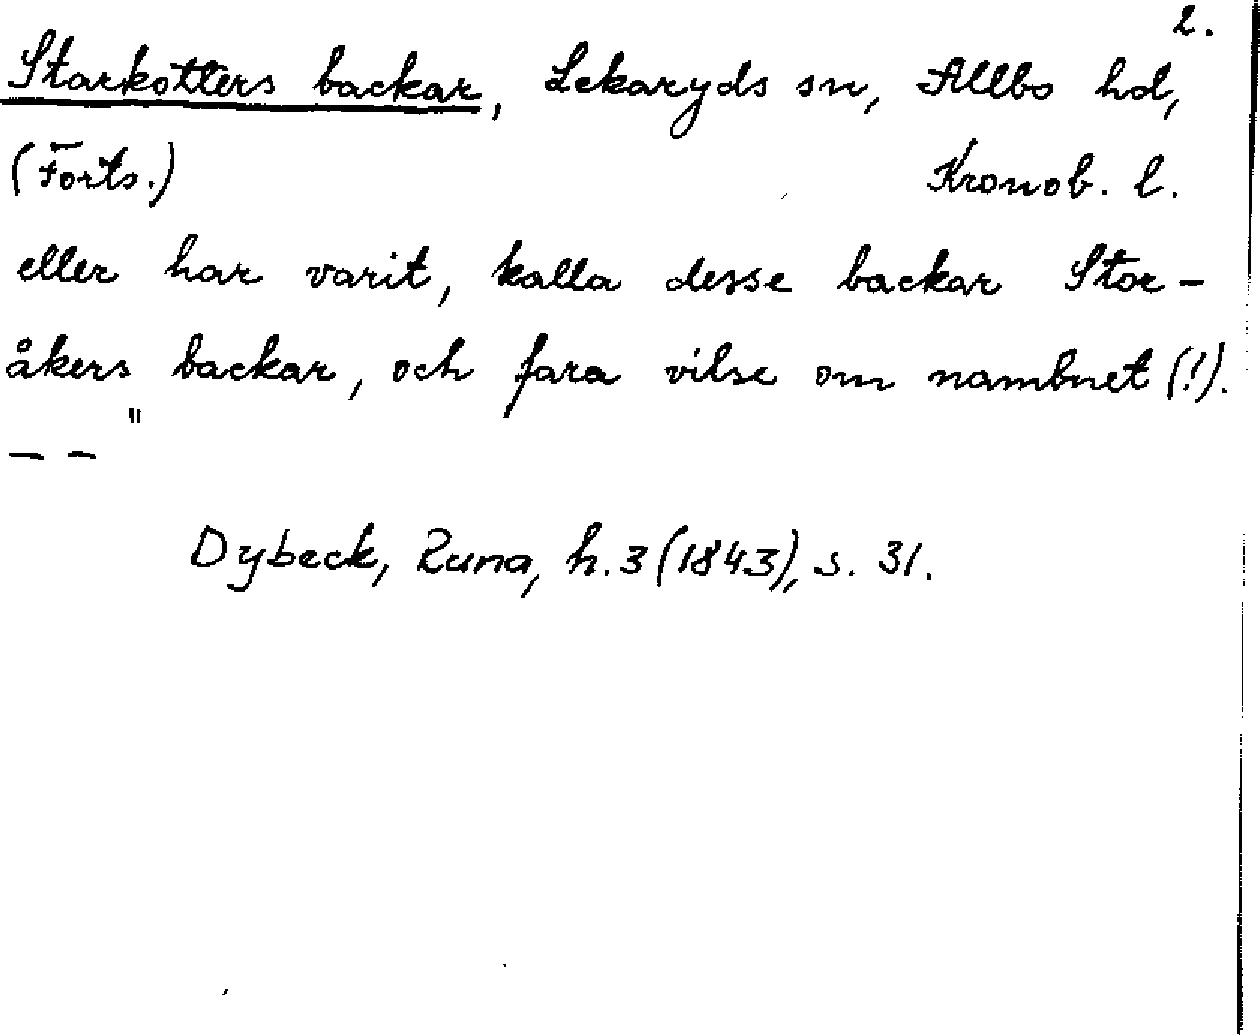 2.
Starkotters backar, Lekaryds sn, Allbo hd,
(Forts.) Kronob. l.
eller har varit, kalla desse backar Stor-
åkers backar, och fara vilse om nambnet (!).
— — "
Dybeck, Runa, h. 3 (1843), s. 31.